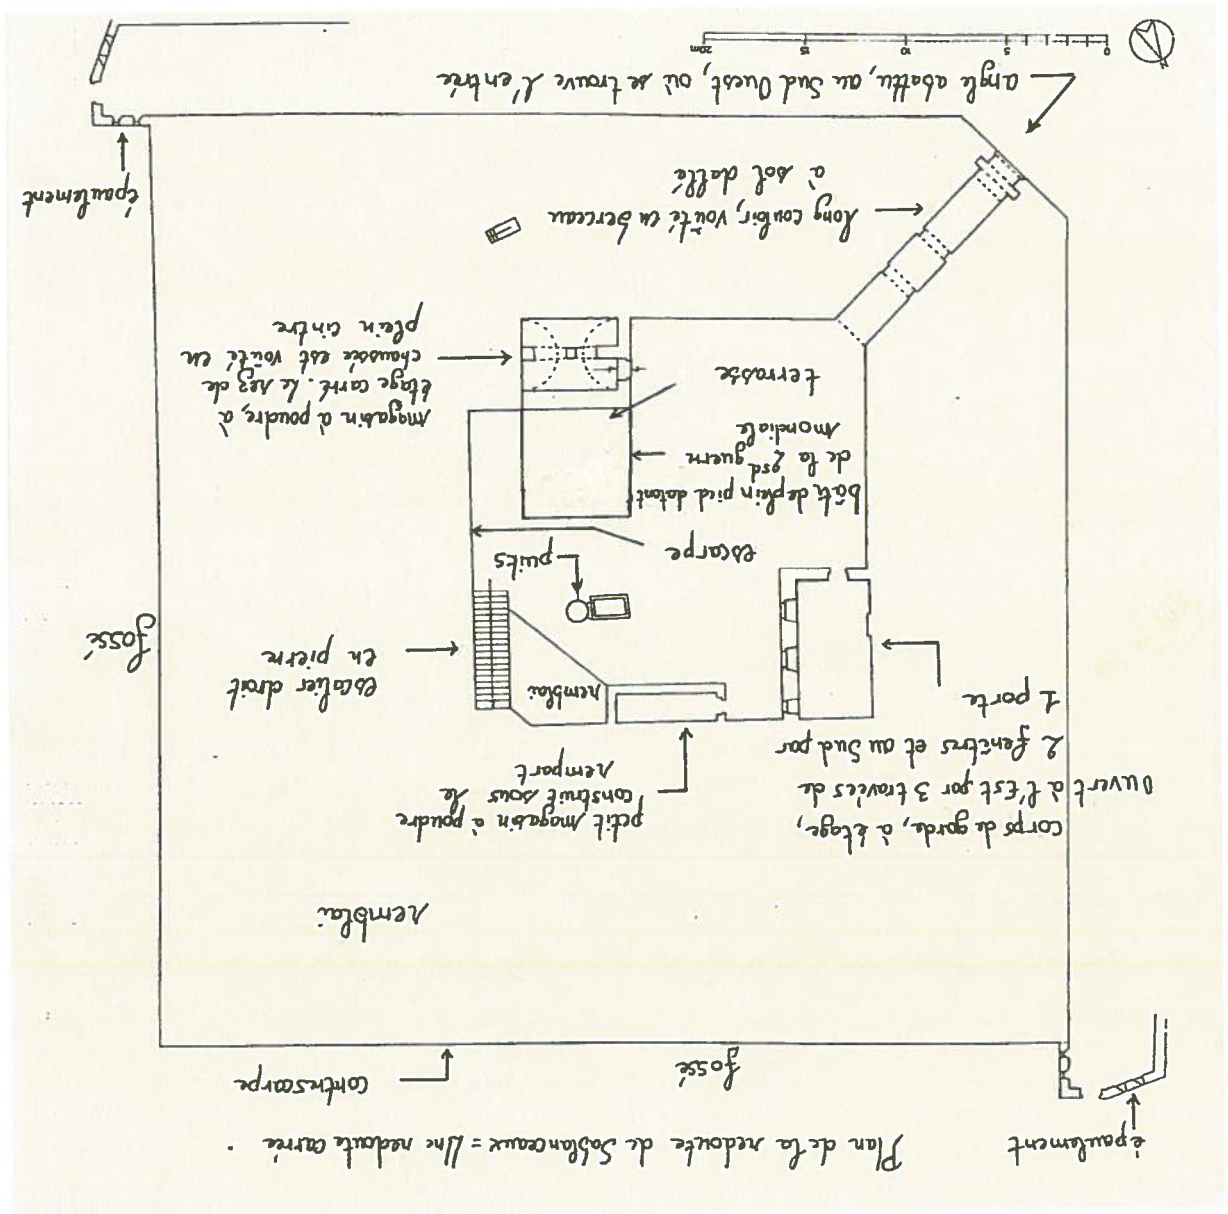 épaulement
Plan de la redoute de Sablanceaux = Une redoute carrée.
fossé
contrescarpe
remblai
Corps de garde, à étage,
ouvert à l'Est par 3 travées de
2 fenêtres et au Sud par
1 porte
petit magasin à poudre
construit sous le
rempart
remblai
escalier droit
en pierre
fossé
puits
escarpe
bâti de plein pied datant
de la 2sd guerre
mondiale
terrasse
magasin à poudre, à
étage carré. Le rez de
chaussée est voûté en
plein cintre
long couloir, voûté en berceau
à sol dallé
épaulement
angle abattu, au Sud Ouest, où se trouve l'entrée
0 5 10 15 20m